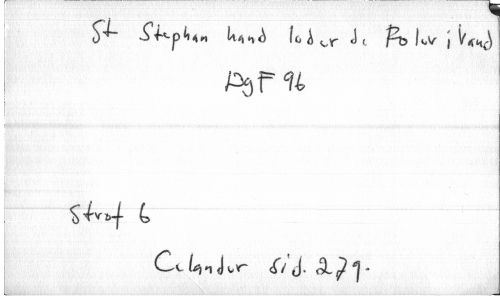 St Stephan hand leder de Foler i Vand
DgF 96
Strof 6
Celander sid. 279.